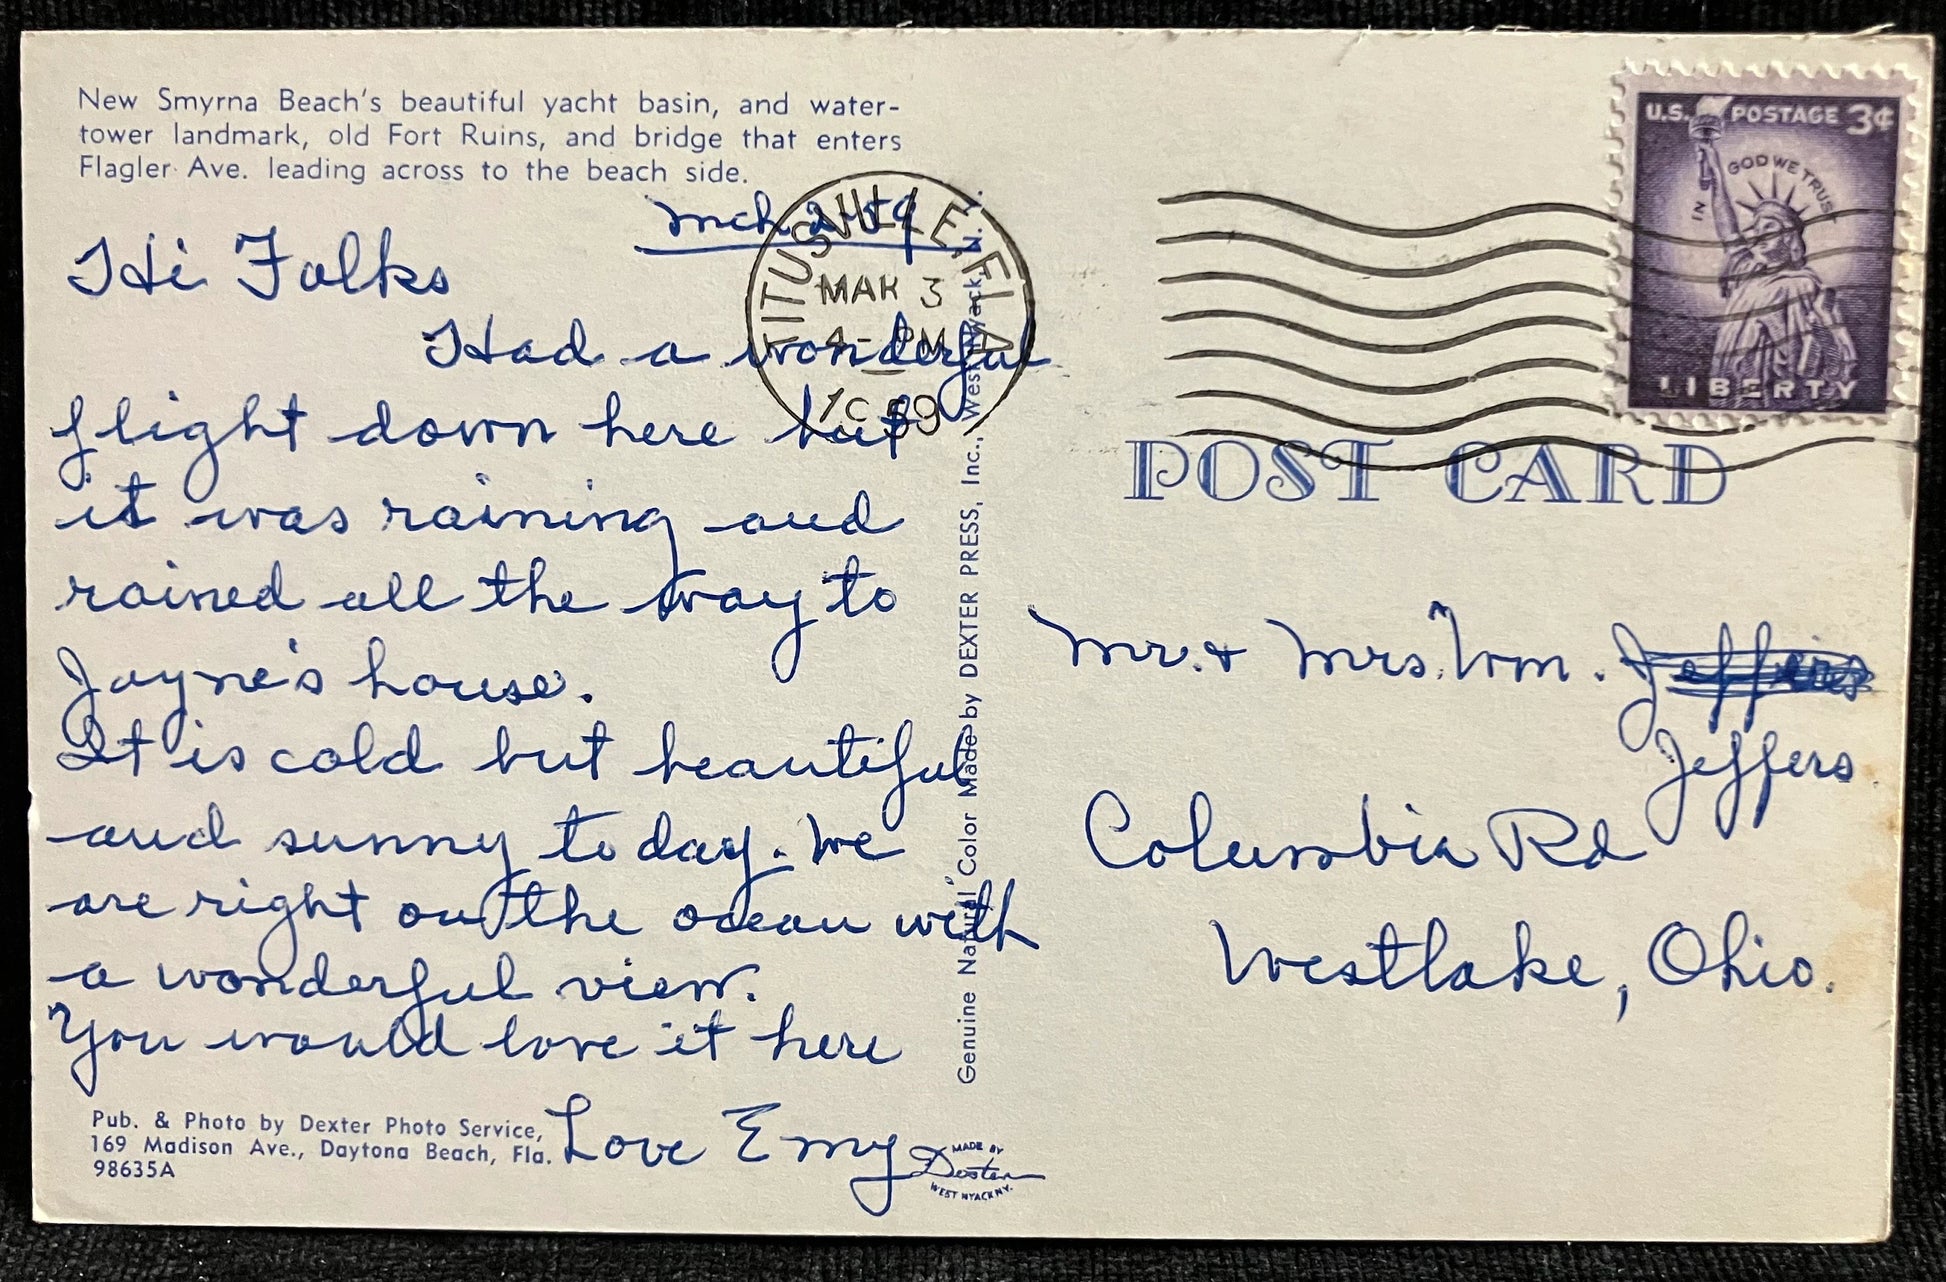 New Smyrna Beach's beautiful yacht basin, and water-
tower landmark, old Fort Ruins, and bridge that enters
Flagler Ave. leading across to the beach side.
Mch 2-59
Hi Folks
Had a wonderful
flight down here but
it was raining and
rained all the way to
Jayne's house.
It is cold but beautiful
and sunny today. We
are right on the ocean with
a wonderful view.
You would love it here
Love Emy
Pub. & Photo by Dexter Photo Service,
169 Madison Ave., Daytona Beach, Fla.
98635A
MADE BY
Dexter
WEST NYACK N.Y.
Genuine Natural Color Made by DEXTER PRESS, Inc., West Nyack, N. Y.
TITUSVILLE, FLA
MAR 3
4 - PM
1959
U.S. POSTAGE 3¢
IN GOD WE TRUST
LIBERTY
POST CARD
Mr. & Mrs. Wm. Jeffers
Jeffers
Columbia Rd
Westlake, Ohio.